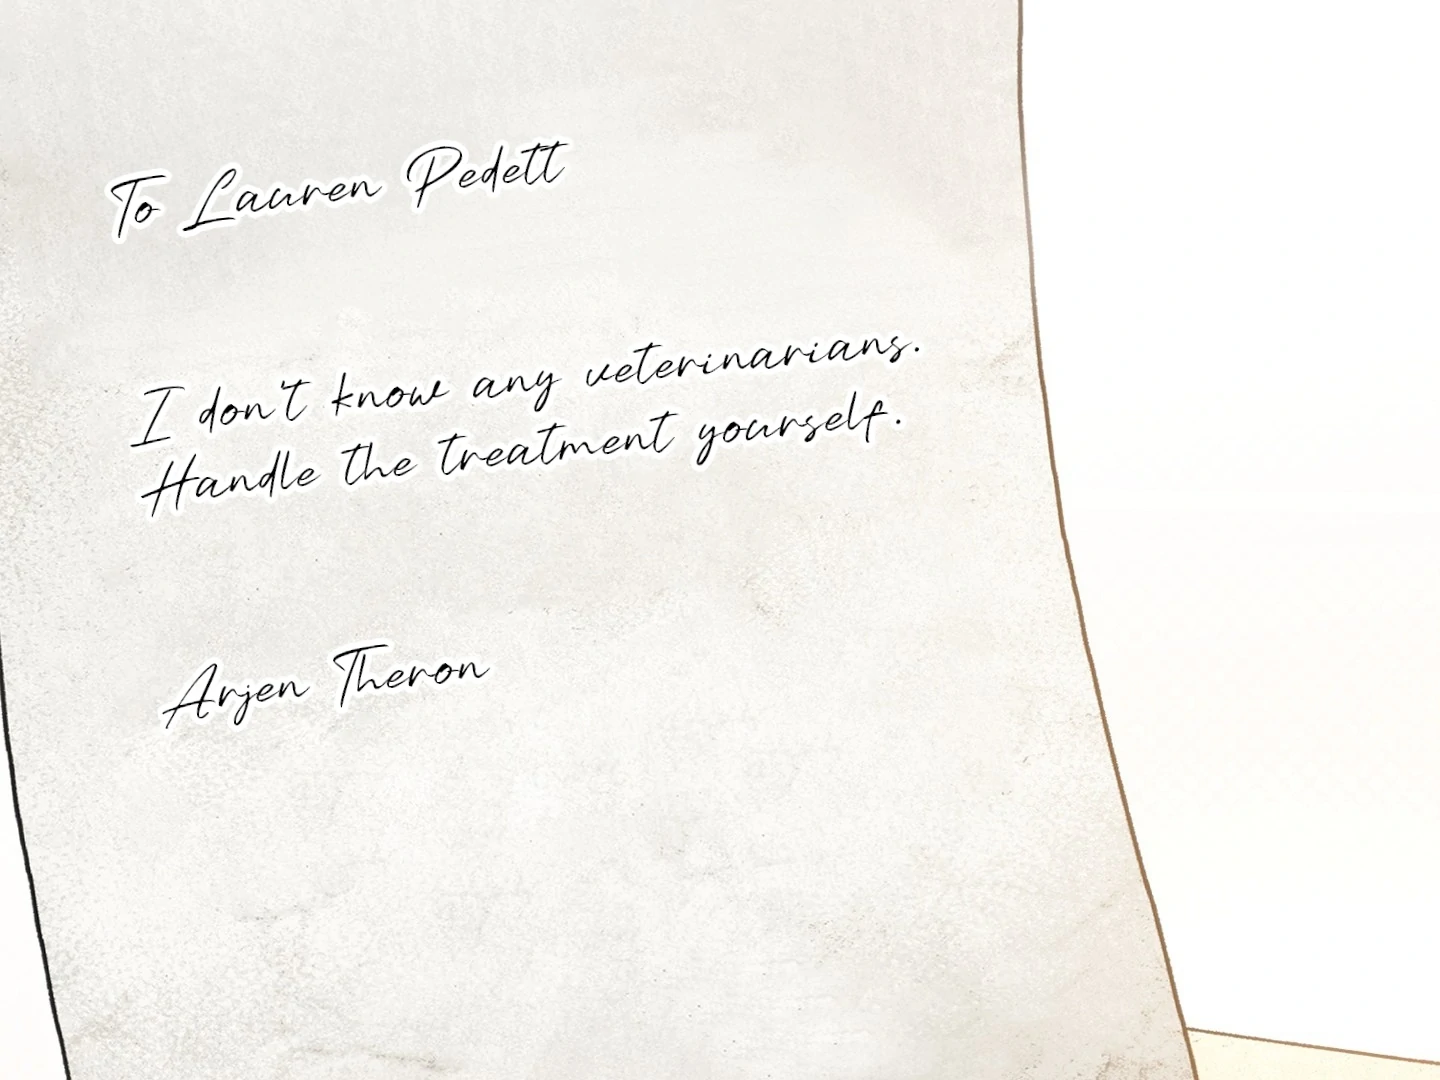 To Lauren Pedett
I don't know any veterinarians.
Handle the treatment yourself.
Arjen Theron